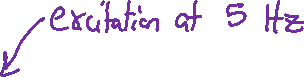 excitation at 5 Hz